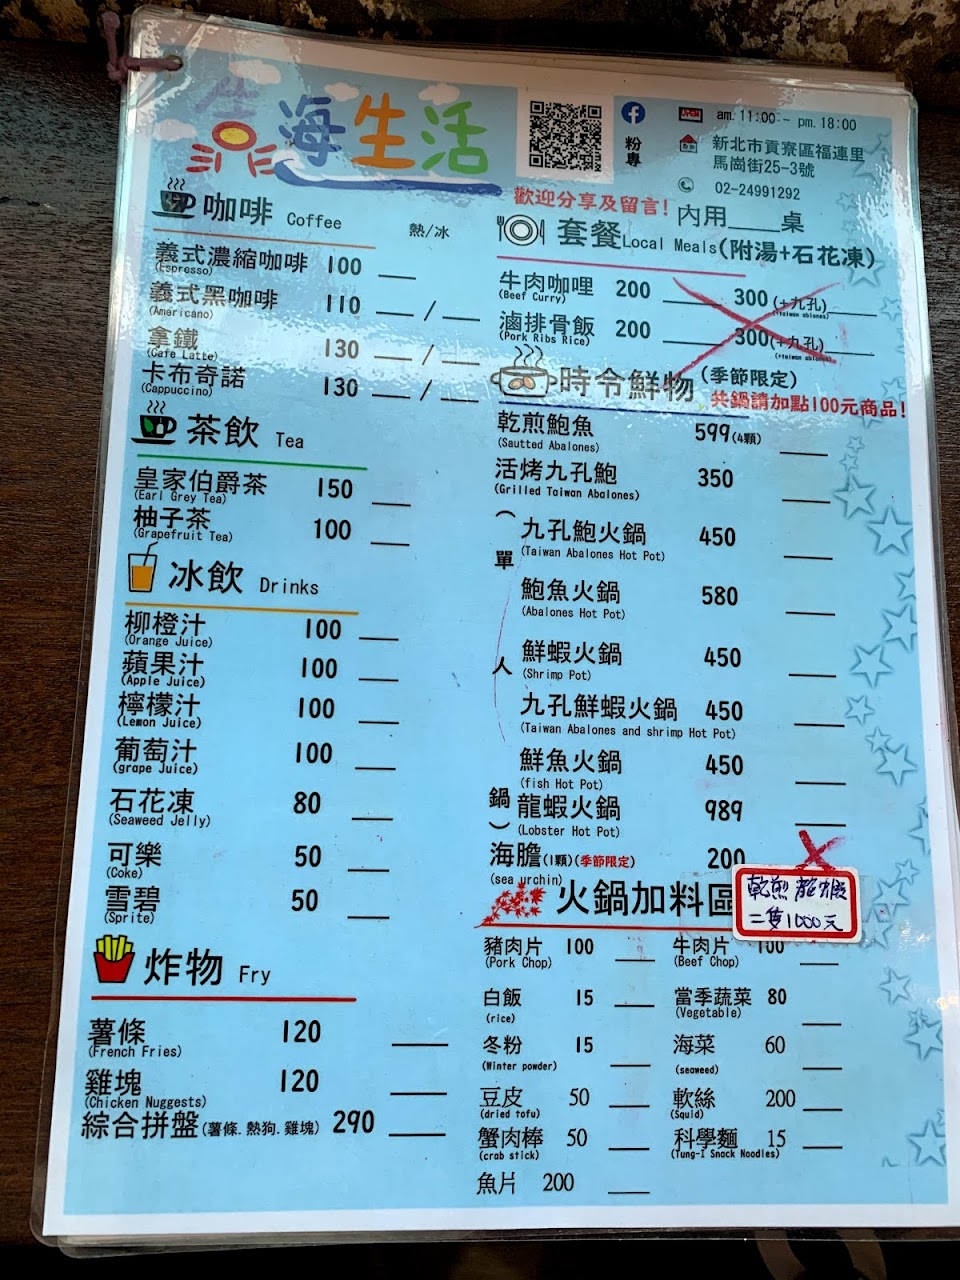 海生活
粉專
OPEN am. 11:00 - pm. 18:00
新北市貢寮區福連里
馬崗街25-3號
02-24991292
歡迎分享及留言!
內用____桌
咖啡 Coffee 熱/冰
義式濃縮咖啡 100 ___
(Espresso)
義式黑咖啡 110 ___/___
(Americano)
拿鐵 130 ___/___
(Cafe Latte)
卡布奇諾 130 ___/___
(Cappuccino)
茶飲 Tea
皇家伯爵茶 150 ___
(Earl Grey Tea)
柚子茶 100 ___
(Grapefruit Tea)
冰飲 Drinks
柳橙汁 100 ___
(Orange Juice)
蘋果汁 100 ___
(Apple Juice)
檸檬汁 100 ___
(Lemon Juice)
葡萄汁 100 ___
(grape Juice)
石花凍 80 ___
(Seaweed Jelly)
可樂 50 ___
(Coke)
雪碧 50 ___
(Sprite)
炸物 Fry
薯條 120 ___
(French Fries)
雞塊 120 ___
(Chicken Nuggets)
綜合拼盤(薯條.熱狗.雞塊) 290 ___
套餐Local Meals(附湯+石花凍)
牛肉咖哩 200 ____ 300(+九孔)____
(Beef Curry) (+taiwan abalones)
滷排骨飯 200 ____ 300(+九孔)____
(Pork Ribs Rice) (+taiwan abalones)
時令鮮物(季節限定)
共鍋請加點100元商品!
乾煎鮑魚 599(4顆) ___
(Sautted Abalones)
活烤九孔鮑 350 ___
(Grilled Taiwan Abalones)
(單人鍋)
九孔鮑火鍋 450 ___
(Taiwan Abalones Hot Pot)
鮑魚火鍋 580 ___
(Abalones Hot Pot)
鮮蝦火鍋 450 ___
(Shrimp Pot)
九孔鮮蝦火鍋 450 ___
(Taiwan Abalones and shrimp Hot Pot)
鮮魚火鍋 450 ___
(fish Hot Pot)
龍蝦火鍋 989 ___
(Lobster Hot Pot)
海膽(1顆)(季節限定) 200
(sea urchin)
乾煎龍蝦
二隻1000元
火鍋加料區
豬肉片 100 ___ 牛肉片 100 ___
(Pork Chop) (Beef Chop)
白飯 15 ___ 當季蔬菜 80 ___
(rice) (Vegetable)
冬粉 15 ___ 海菜 60 ___
(Winter powder) (seaweed)
豆皮 50 ___ 軟絲 200 ___
(dried tofu) (Squid)
蟹肉棒 50 ___ 科學麵 15 ___
(crab stick) (Tung-I Snack Noodles)
魚片 200 ___